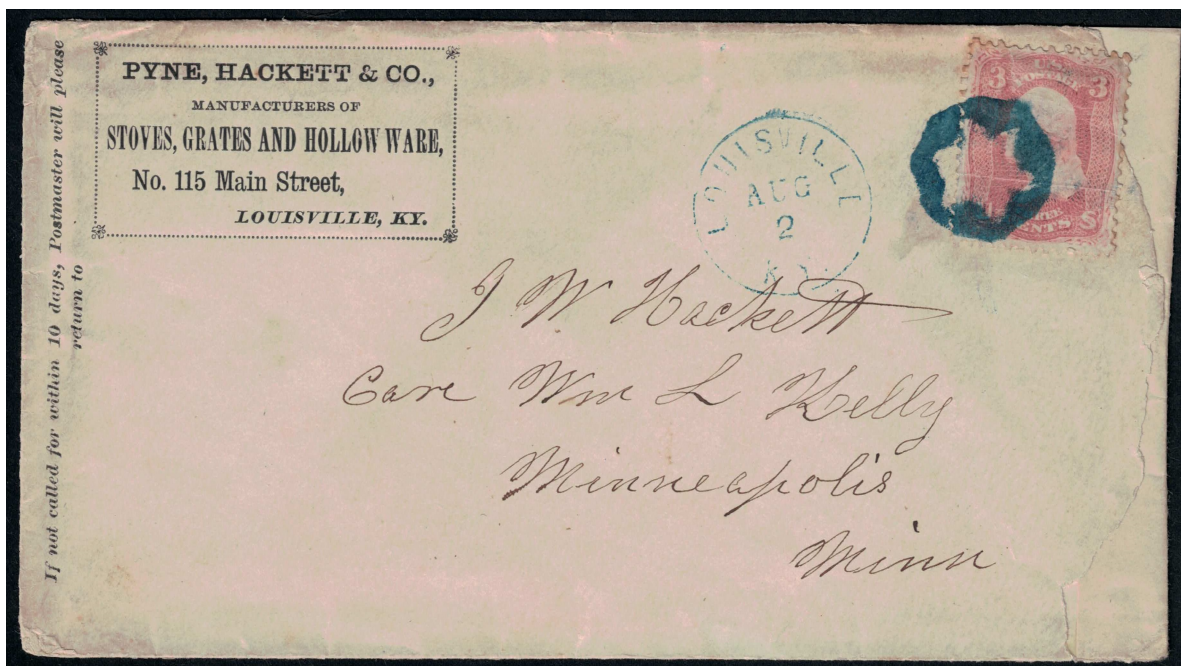 If not called for within 10 days, Postmaster will please
return to
PYNE, HACKETT & CO.,
MANUFACTURERS OF
STOVES, GRATES AND HOLLOW WARE,
No. 115 Main Street,
LOUISVILLE, KY.
LOUISVILLE
AUG
2
KY
3 3
U.S.
POSTAGE
CENTS
J W Hackett
Care Wm L Kelly
Minneapolis
Minn